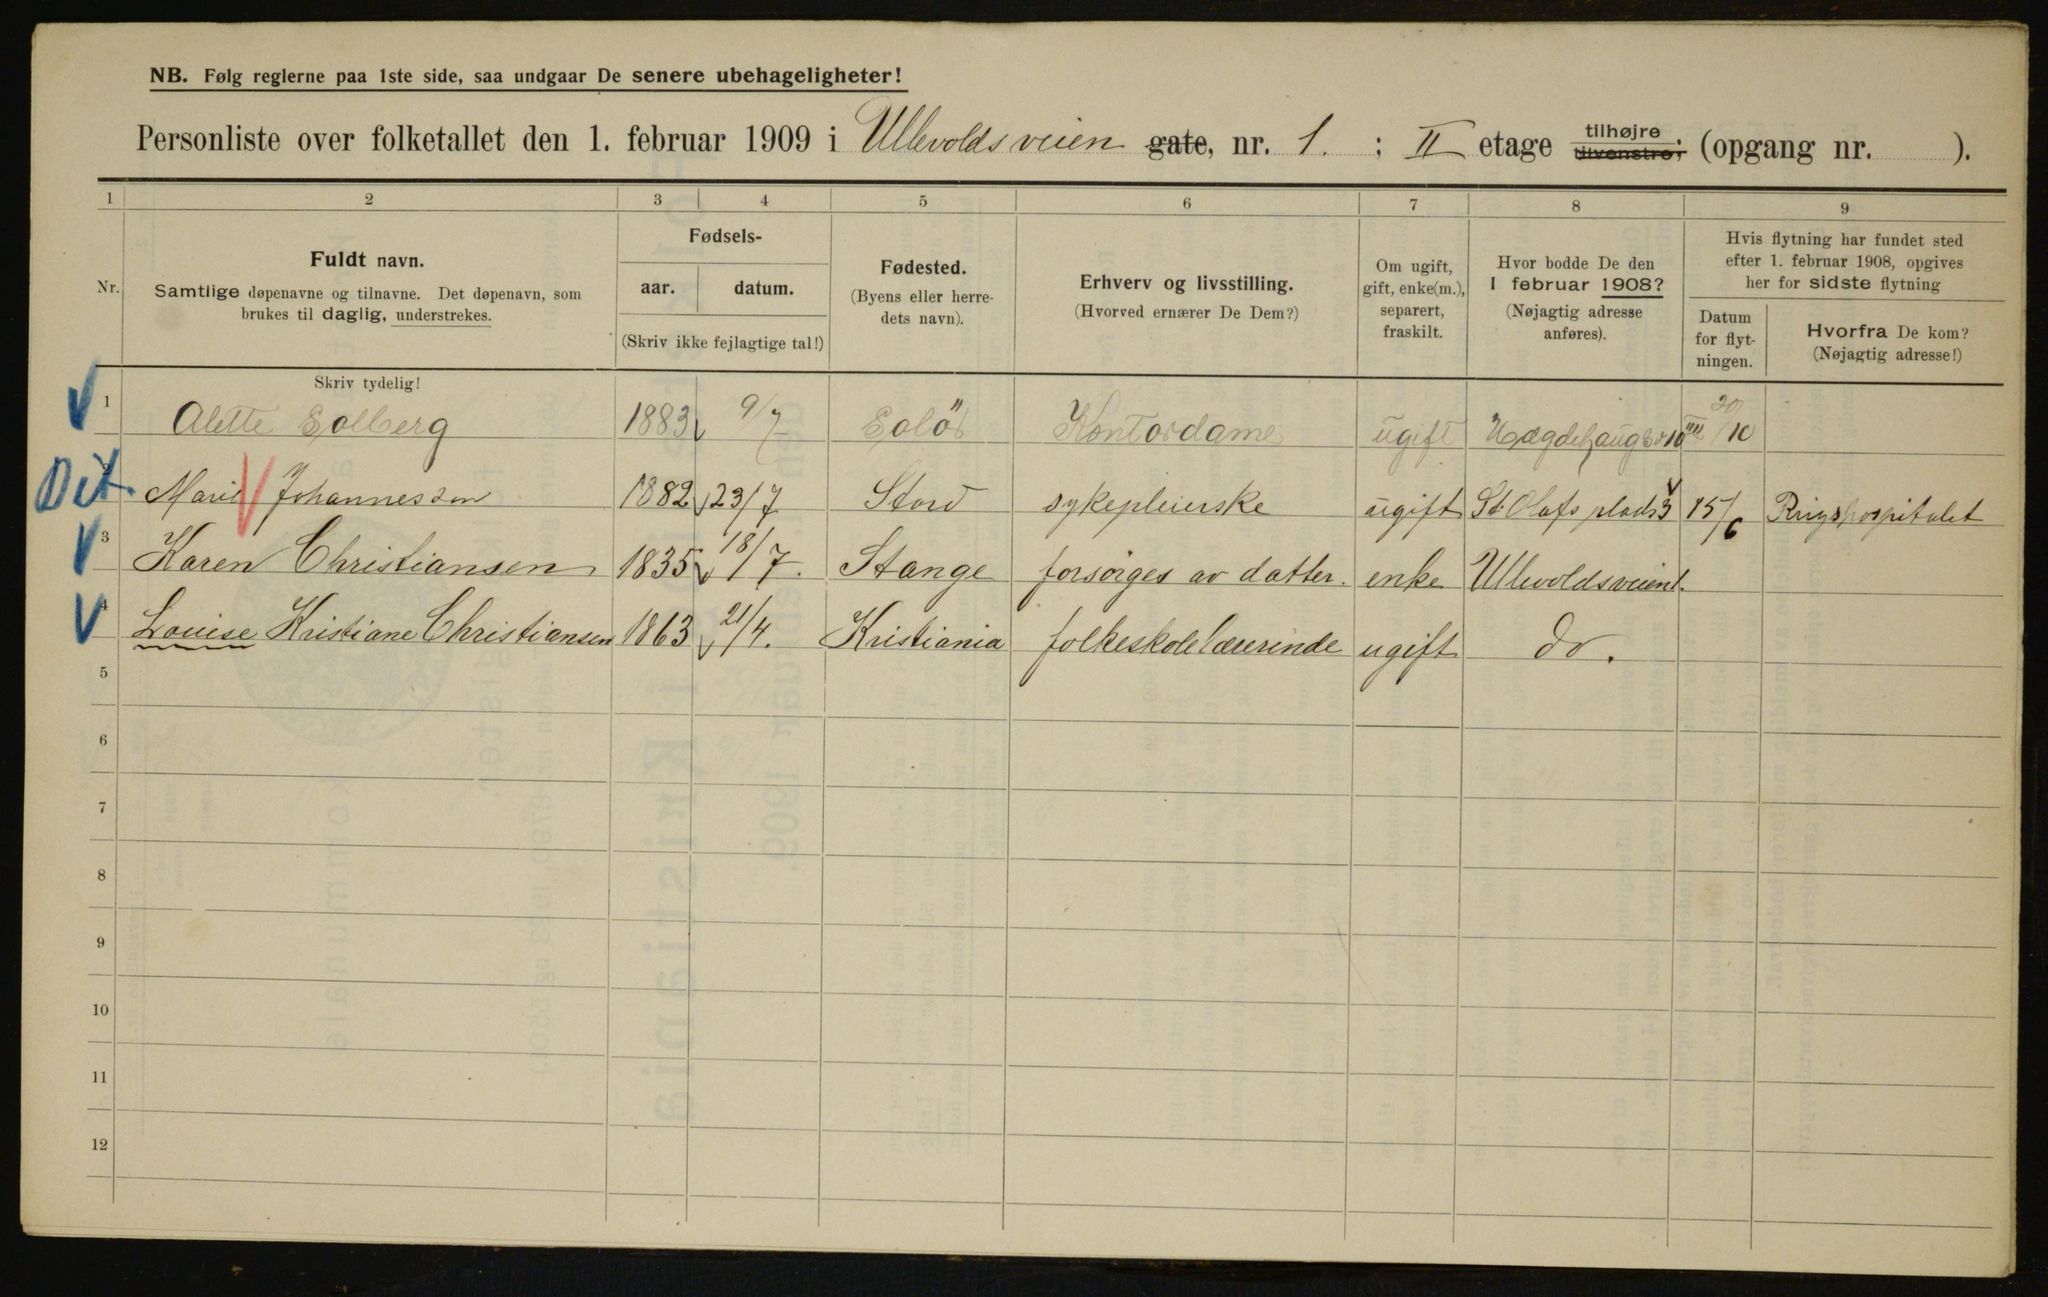 NB. Følg reglerne paa 1ste side, saa undgaar De senere ubehageligheter!
Personliste over folketallet den 1. februar 1909 i Ullevoldsveien gate, nr. 1. ; II etage tilhøjre tilvenstre; (opgang nr. ).
1 2 3 4 5 6 7 8 9
Nr.
Fuldt navn.
Samtlige døpenavne og tilnavne. Det døpenavn, som
brukes til daglig, understrekes.
Skriv tydelig!
Fødsels-
aar. datum.
(Skriv ikke fejlagtige tal!)
Fødested.
(Byens eller herre-
dets navn).
Erhverv og livsstilling.
(Hvorved ernærer De Dem?)
Om ugift,
gift, enke(m.),
separert,
fraskilt.
Hvor bodde De den
1 februar 1908?
(Nøjagtig adresse
anføres).
Hvis flytning har fundet sted
efter 1. februar 1908, opgives
her for sidste flytning
Datum
for flyt-
ningen.
Hvorfra De kom?
(Nøjagtig adresse!)
1 Alette Solberg 1883 9/7 Solör Kontordame ugift 20/10
Marie Johannesson 1882 23/7 Stord sykepleierske ugift St. Olafs plads 3 15/6 Rigshospitalet
3 Karen Christiansen 1835 18/7. Stange forsörges av datter. enke Ullevoldsveien 1.
4 Louise Kristiane Christiansen 1863 21/4. Kristiania folkeskolelærerinde ugift do.
5
6
7
8
9
10
11
12